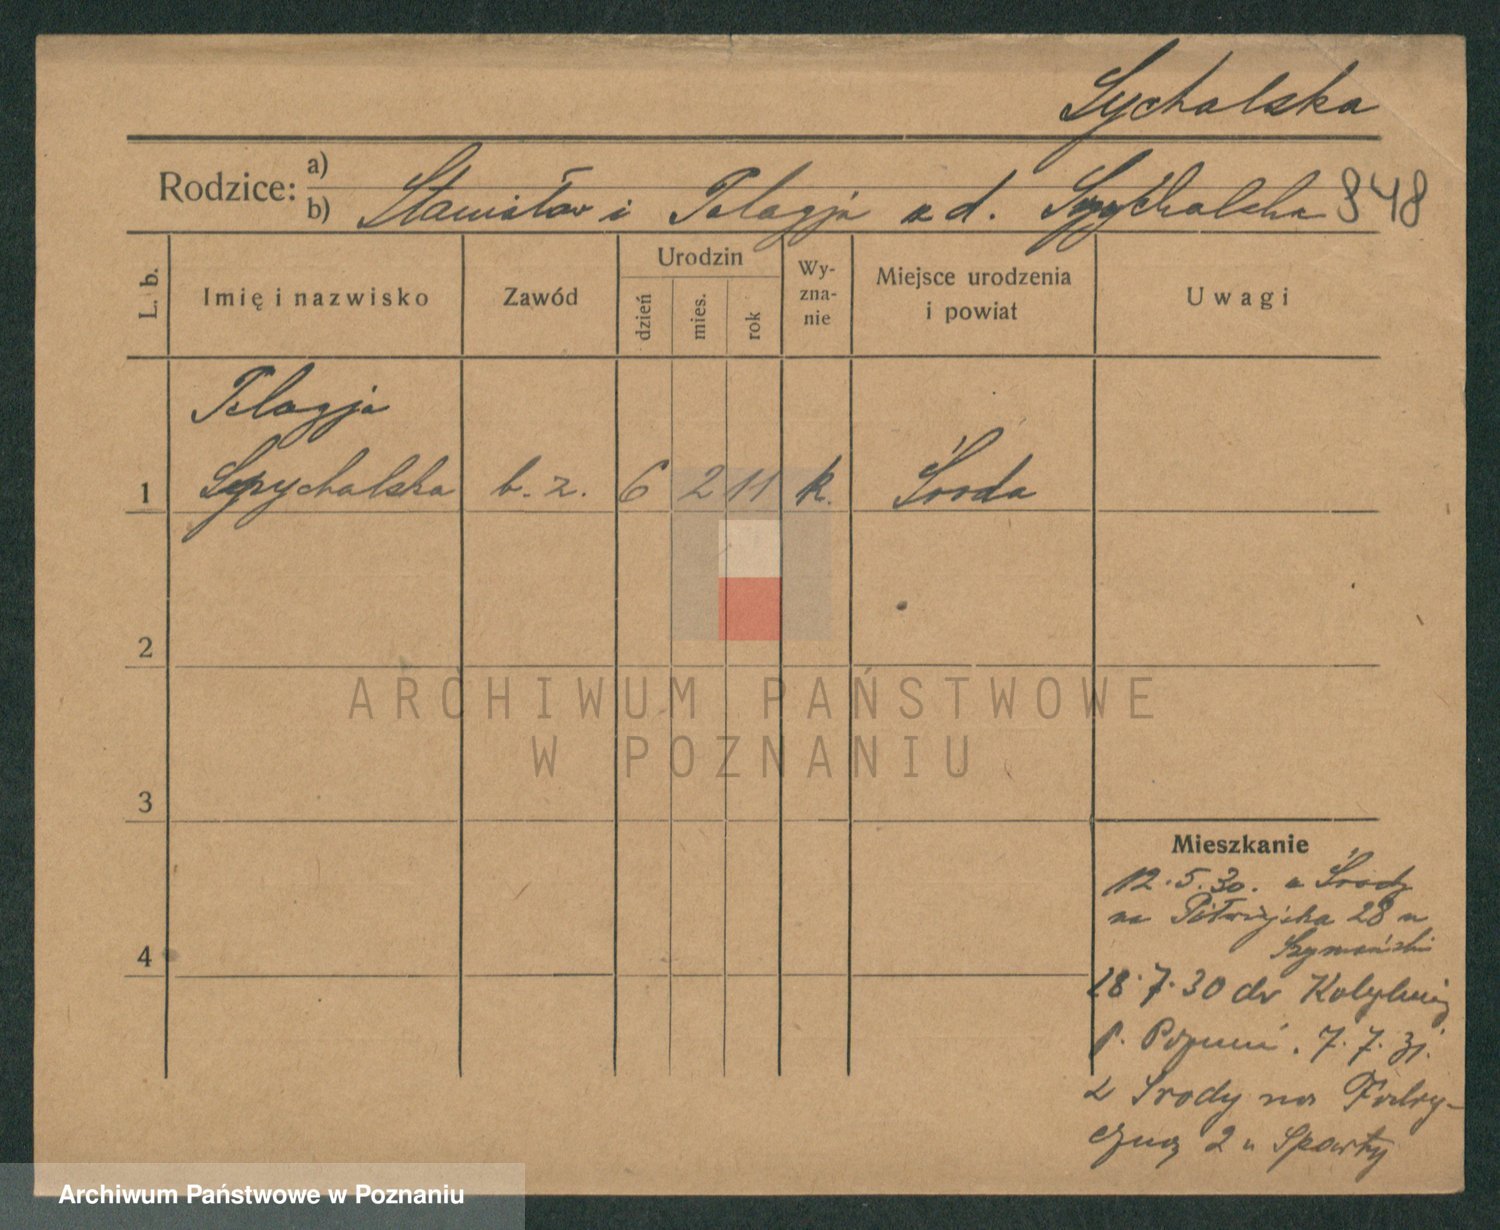 Sychalska
Rodzice: a)
b) Stanisław i Pelagja z d. Spychalska 848
L. b. Imię i nazwisko Zawód Urodzin dzień mies. rok Wy-zna-nie Miejsce urodzenia i powiat Uwagi
Pelagja
1 Spychalska b. z. 6 2 11 k. Środa
2
ARCHIWUM PAŃSTWOWE
W POZNANIU
3
Mieszkanie
12.5.30. z Środy
na 28 u
4 Szymański
18.7.30 do
p. Poznań. 7.7.31.
z Środy na Fabry-
czną 2 u Sparty
Archiwum Państwowe w Poznaniu